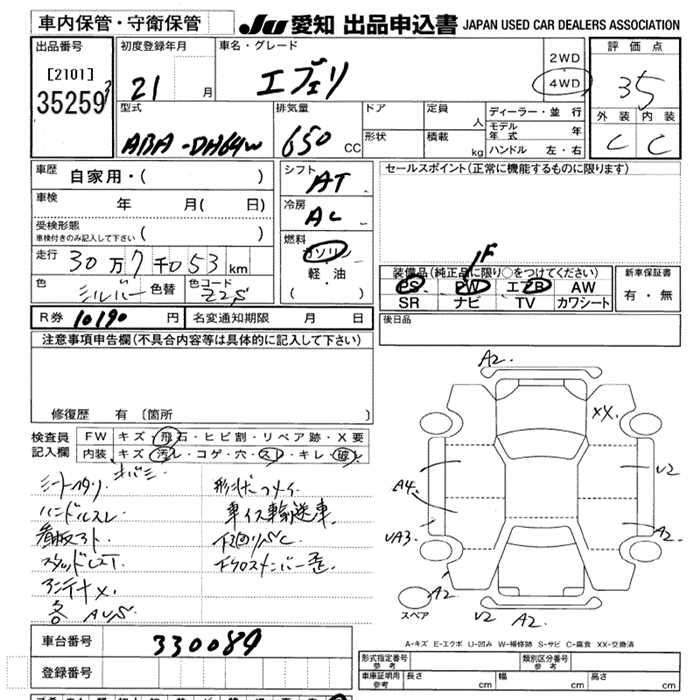 車内保管・守衛保管 JU 愛知 出品申込書 JAPAN USED CAR DEALERS ASSOCIATION
出品番号 初度登録年月 車名・グレード 2WD 評価点
[2101] 21 月 エブリ 4WD 35
35259
型式 排気量 ドア 定員 人 ディーラー・並行 外装 内装
ABA-DA64W 650 CC 形状 積載 kg モデル年式 年 C C
ハンドル 左・右
車歴 自家用・( ) シフト AT セールスポイント(正常に機能するものに限ります)
車検 年 月( 日) 冷房 AC
受検形態 ( )
車検付きのみ記入して下さい
燃料 ガソリン
走行 30万7千053km 軽油 F
装備品(純正品に限り○をつけてください) 新車保証書
色 シルバー 色替 色コード Z2S ( ) PS PW エアB AW 有・無
SR ナビ TV カワシート
R券 10190 円 名変通知期限 月 日 後日品
注意事項申告欄(不具合内容等は具体的に記入して下さい)
A2.
XX.
修復歴 有〔箇所 〕
検査員 FW キズ・飛石・ヒビ割・リペア跡・X要
記入欄 内装 キズ・汚レ・コゲ・穴・スレ・キレ・破レ
シートヘタリ V2
ハンドルスレ 車イス輸送車 A4.
下廻りSC UA3. A2.
アンテナX. A2.
各AUS V2 A2.
スペア
A-キズ E-エクボ U-凹み W-補修跡 S-サビ C-腐食 XX-交換済
車台番号 330089
登録番号 形式指定番号 参考 類別区分番号 参考
車庫証明用 参考 長さ cm 幅 cm 高さ cm